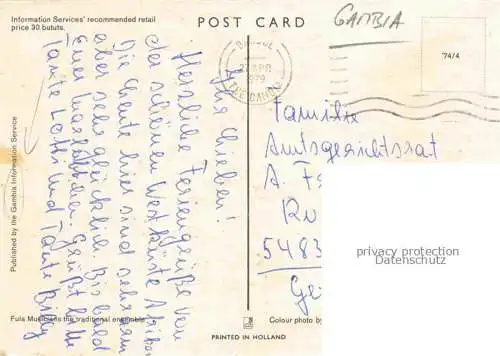 Information Services' recommended retail
price 30 bututs.
POST CARD
GAMBIA
74/4
BANJUL
APR
1979
THE GAMBIA
Ihr Lieben!
Herzliche Feriengrüße von
der schönen Westküste Afrikas
Die Leute hier sind sehr arm
aber sehr glücklich. Bis bald
Tante Lotti und Tante Billy
Familie
Amtsgerichtsrat
A. F
Ru
5483
privacy protection
Datenschutz
Published by the Gambia Information Service
Fula Musicians the traditional ensemble
Colour photo by
PRINTED IN HOLLAND